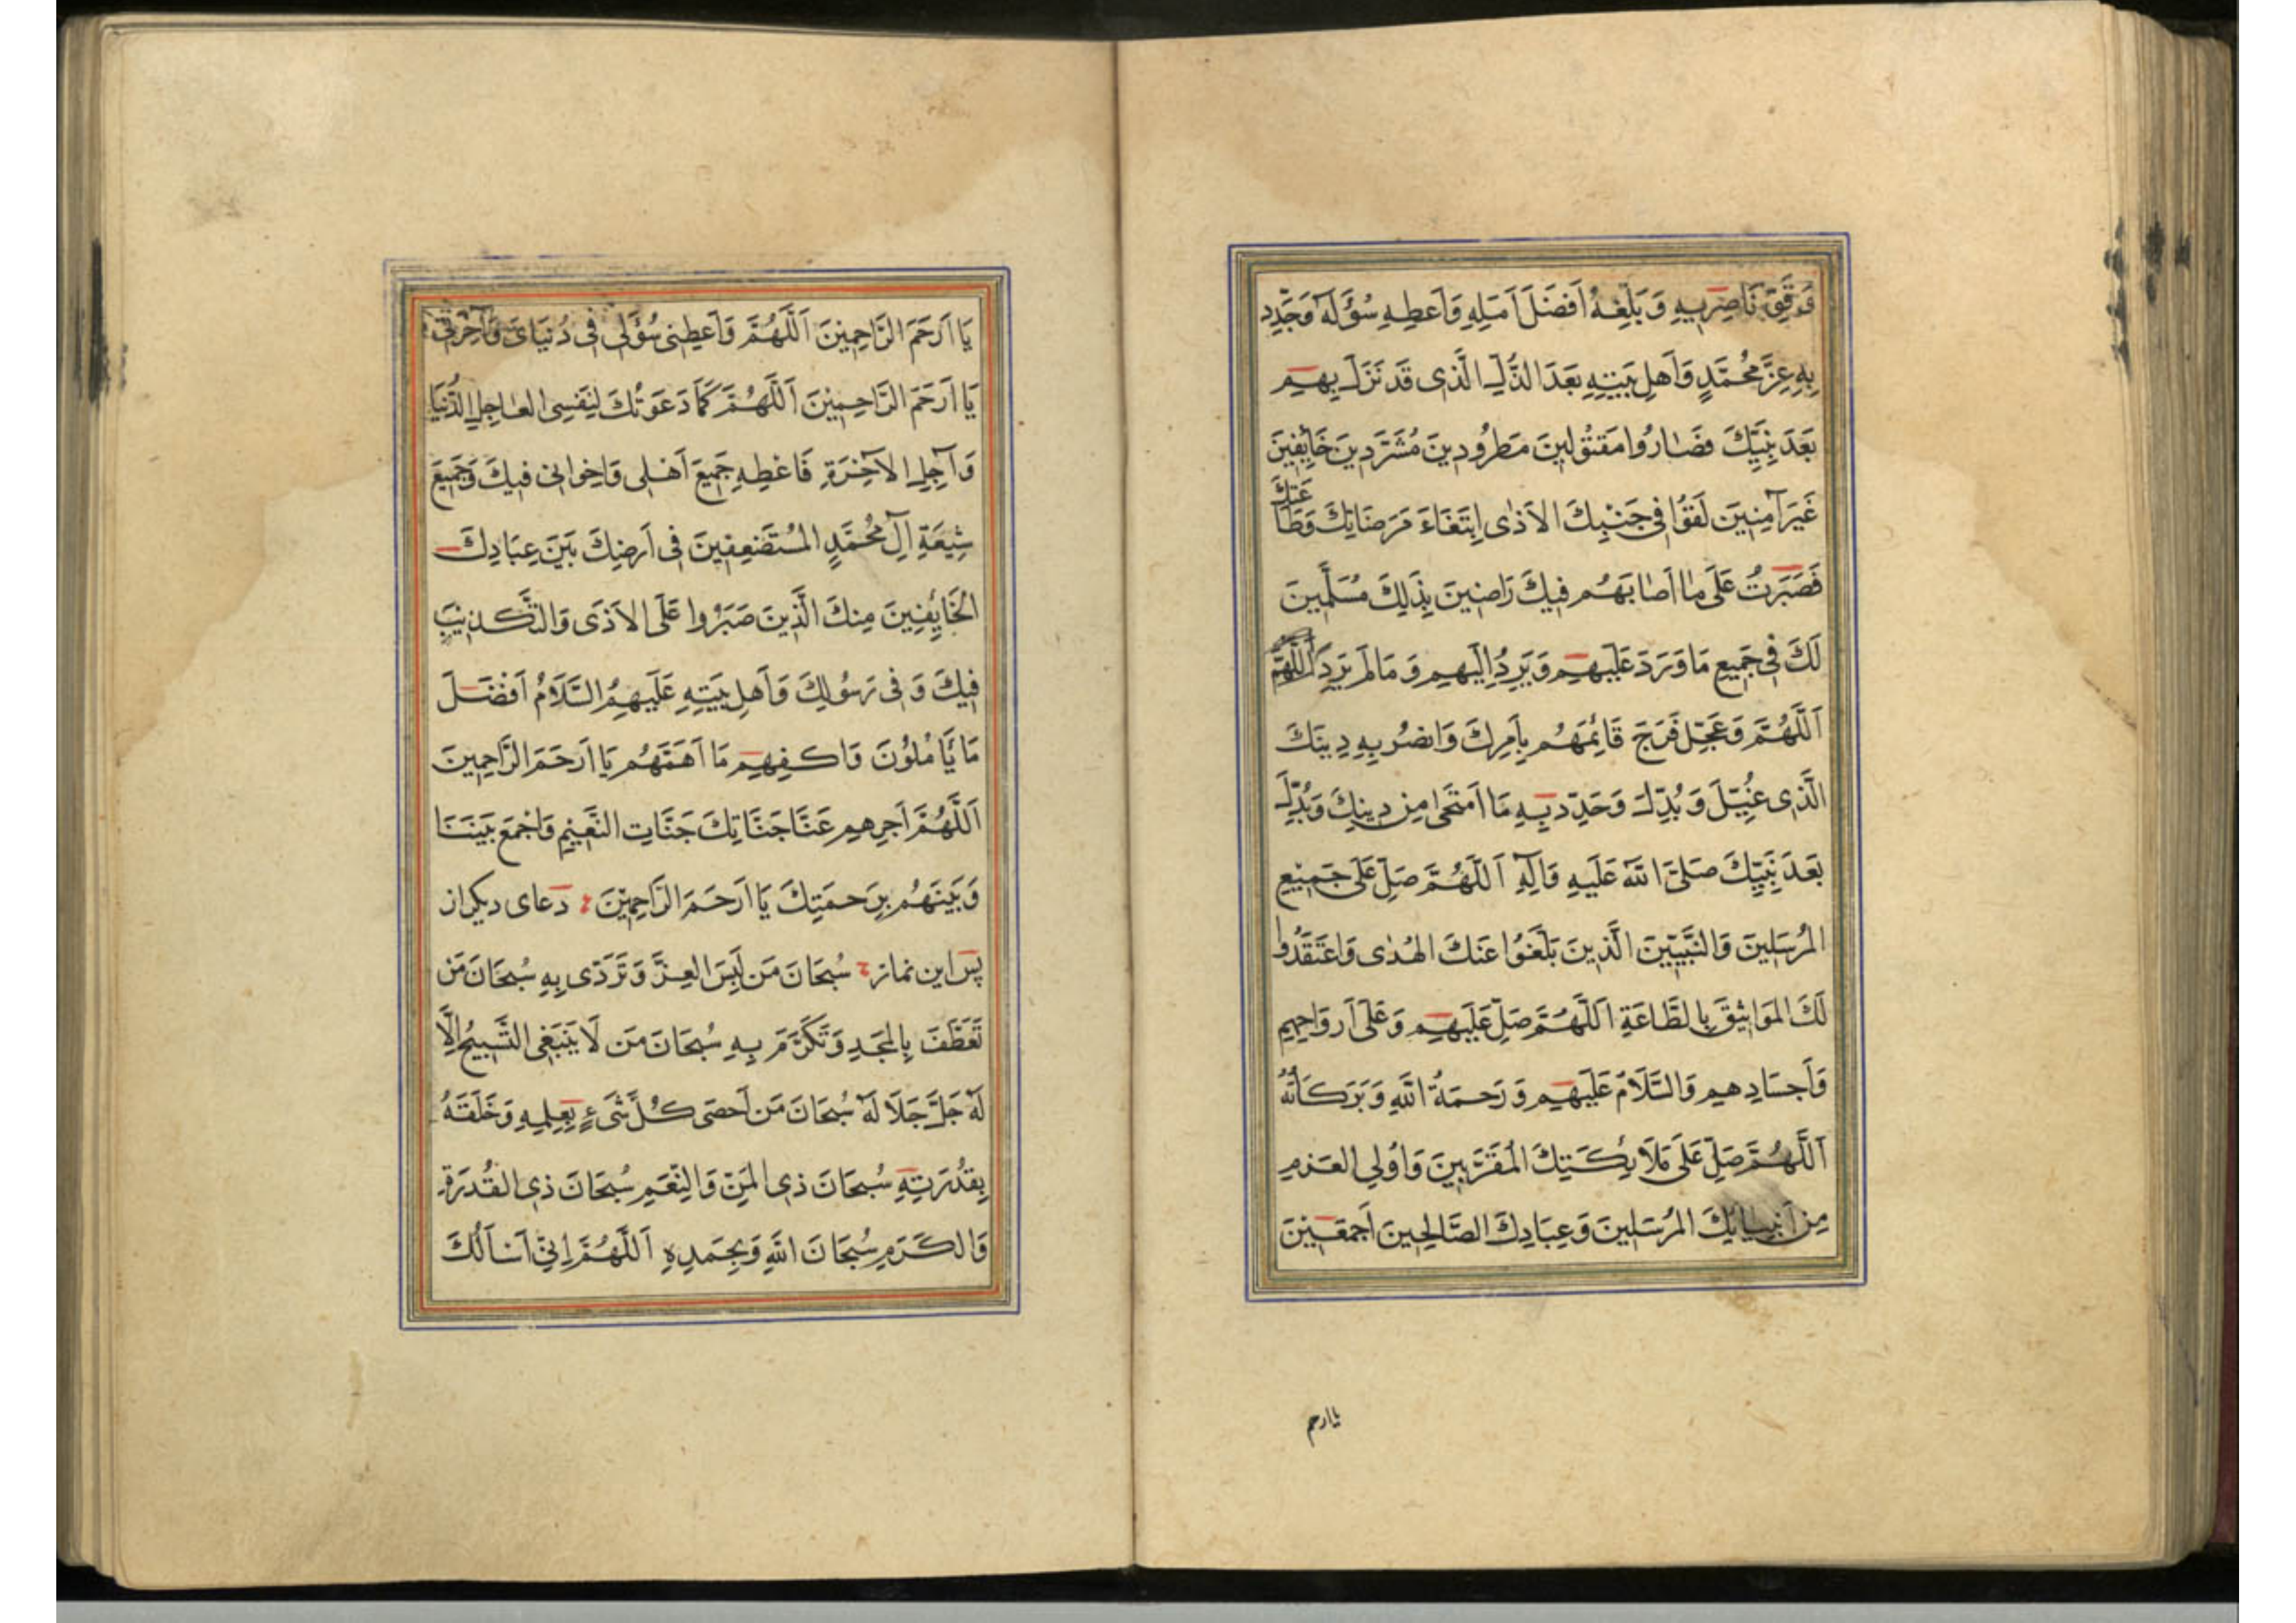 وَفِّق نَاصِرِيهِ وَبَلِّغهُ اَفضَلَ اَمَلِهِ وَاَعطِهِ سُؤلَهُ وَجَدِّد
بِهِ عِزَّ مُحَمَّدٍ وَاَهلِ بَيتِهِ بَعدَ الذُّلِّ الَّذى قَد نَزَلَ بِهِم
بَعدَ نَبِيِّكَ فَصَارُوا مَقتُولينَ مَطرُودينَ مُشَرَّدينَ خَائِفينَ
غَيرَ آمِنينَ لَقُوا فى جَنبِكَ الاَذى اِبتِغَاءَ مَرضَاتِكَ وَطَاعَتِكَ
فَصَبَرُت عَلى ما اَصابَهُم فيكَ رَاضينَ بِذلِكَ مُسَلِّمينَ
لَكَ فى جَميعِ مَا وَرَدَ عَلَيهِم وَيَرِدُ اِلَيهِم وَمَا لَم يَرِد اَللّهُمَّ
اَللّهُمَّ وَعَجِّل فَرَجَ قَائِمَهُم بِاَمرِكَ وَانصُر بِهِ دِينَكَ
الَّذى غُيِّلَ وَبُدِّلَ وَحَدِّد بِهِ مَا اَمتَحى مِن دينِكَ وَبُدِّلَ
بَعدَ نَبِيِّكَ صَلَّى اللّهُ عَلَيهِ وَالِهِ اَللّهُمَّ صَلِّ عَلى جَميعِ
المُرسَلينَ وَالنَّبِيّينَ الَّذينَ بَلَّغُوا عَنكَ الهُدى وَاعتَقَدُوا
لَكَ المَوَاثيقَ بِالطَّاعَةِ اَللّهُمَّ صَلِّ عَلَيهِم وَعَلى اَروَاحِهِم
وَاَجسَادِهِم وَالسَّلَامُ عَلَيهِم وَرَحمَةُ اللّهِ وَبَرَكَاتُهُ
اَللّهُمَّ صَلِّ عَلى مَلَائِكَتِكَ المُقَرَّبينَ وَاُولِى العَزمِ
مِن اَنبِيائِكَ المُرسَلينَ وَعِبَادِكَ الصَّالِحينَ اَجمَعينَ
يا ارحم
يَا اَرحَمَ الرَّاحِمينَ اَللّهُمَّ وَاَعطِنى سُؤلى فى دُنيَاىَ وَآخِرَتى
يَا اَرحَمَ الرَّاحِمينَ اَللّهُمَّ كَمَا دَعَوتُكَ لِنَفسِى العاجِلِ الدُّنيَا
وَآجِلِ الآخِرَةِ فَاعطِهِ جَميعَ اَهلى وَاِخوانى فيكَ وَجَميعَ
شِيعَةِ آلِ مُحَمَّدٍ المُستَضعِفينَ فى اَرضِكَ بَينَ عِبَادِكَ
الخَائِفينَ مِنكَ الَّذينَ صَبَرُوا عَلَى الاَذى وَالتَّكذيبِ
فيكَ وَفى رَسُولِكَ وَاَهلِ بَيتِهِ عَلَيهِمُ السَّلَامُ اَفضَلَ
مَا يَأمُلُونَ وَاكفِهِم مَا اَهَمَّهُم يَا اَرحَمَ الرَّاحِمينَ
اَللّهُمَّ اَجرِهِم عَنَّا جَنَّاتِكَ جَنَّاتِ النَّعيمِ وَاجمَع بَينَنَا
وَبَينَهُم بِرَحمَتِكَ يَا اَرحَمَ الرَّاحِمينَ دعاى ديكر از
پس اين نماز سُبحَانَ مَن لَبِسَ العِزَّ وَتَرَدّى بِهِ سُبحَانَ مَن
تَعَطَّفَ بِالمَجدِ وَتَكَرَّمَ بِهِ سُبحَانَ مَن لَا يَنبَغِى التَّسبيحُ اِلَّا
لَهُ جَلَّ جَلَالَهُ سُبحَانَ مَن اَحصى كُلَّ شَىءٍ بِعِلمِهِ وَخَلَقَهُ
بِقُدرَتِهِ سُبحَانَ ذِى المَنِّ وَالنِّعَمِ سُبحَانَ ذِى القُدرَةِ
وَالكَرَمِ سُبحَانَ اللّهِ وَبِحَمدِهِ اَللّهُمَّ اِنّى اَساَلُكَ